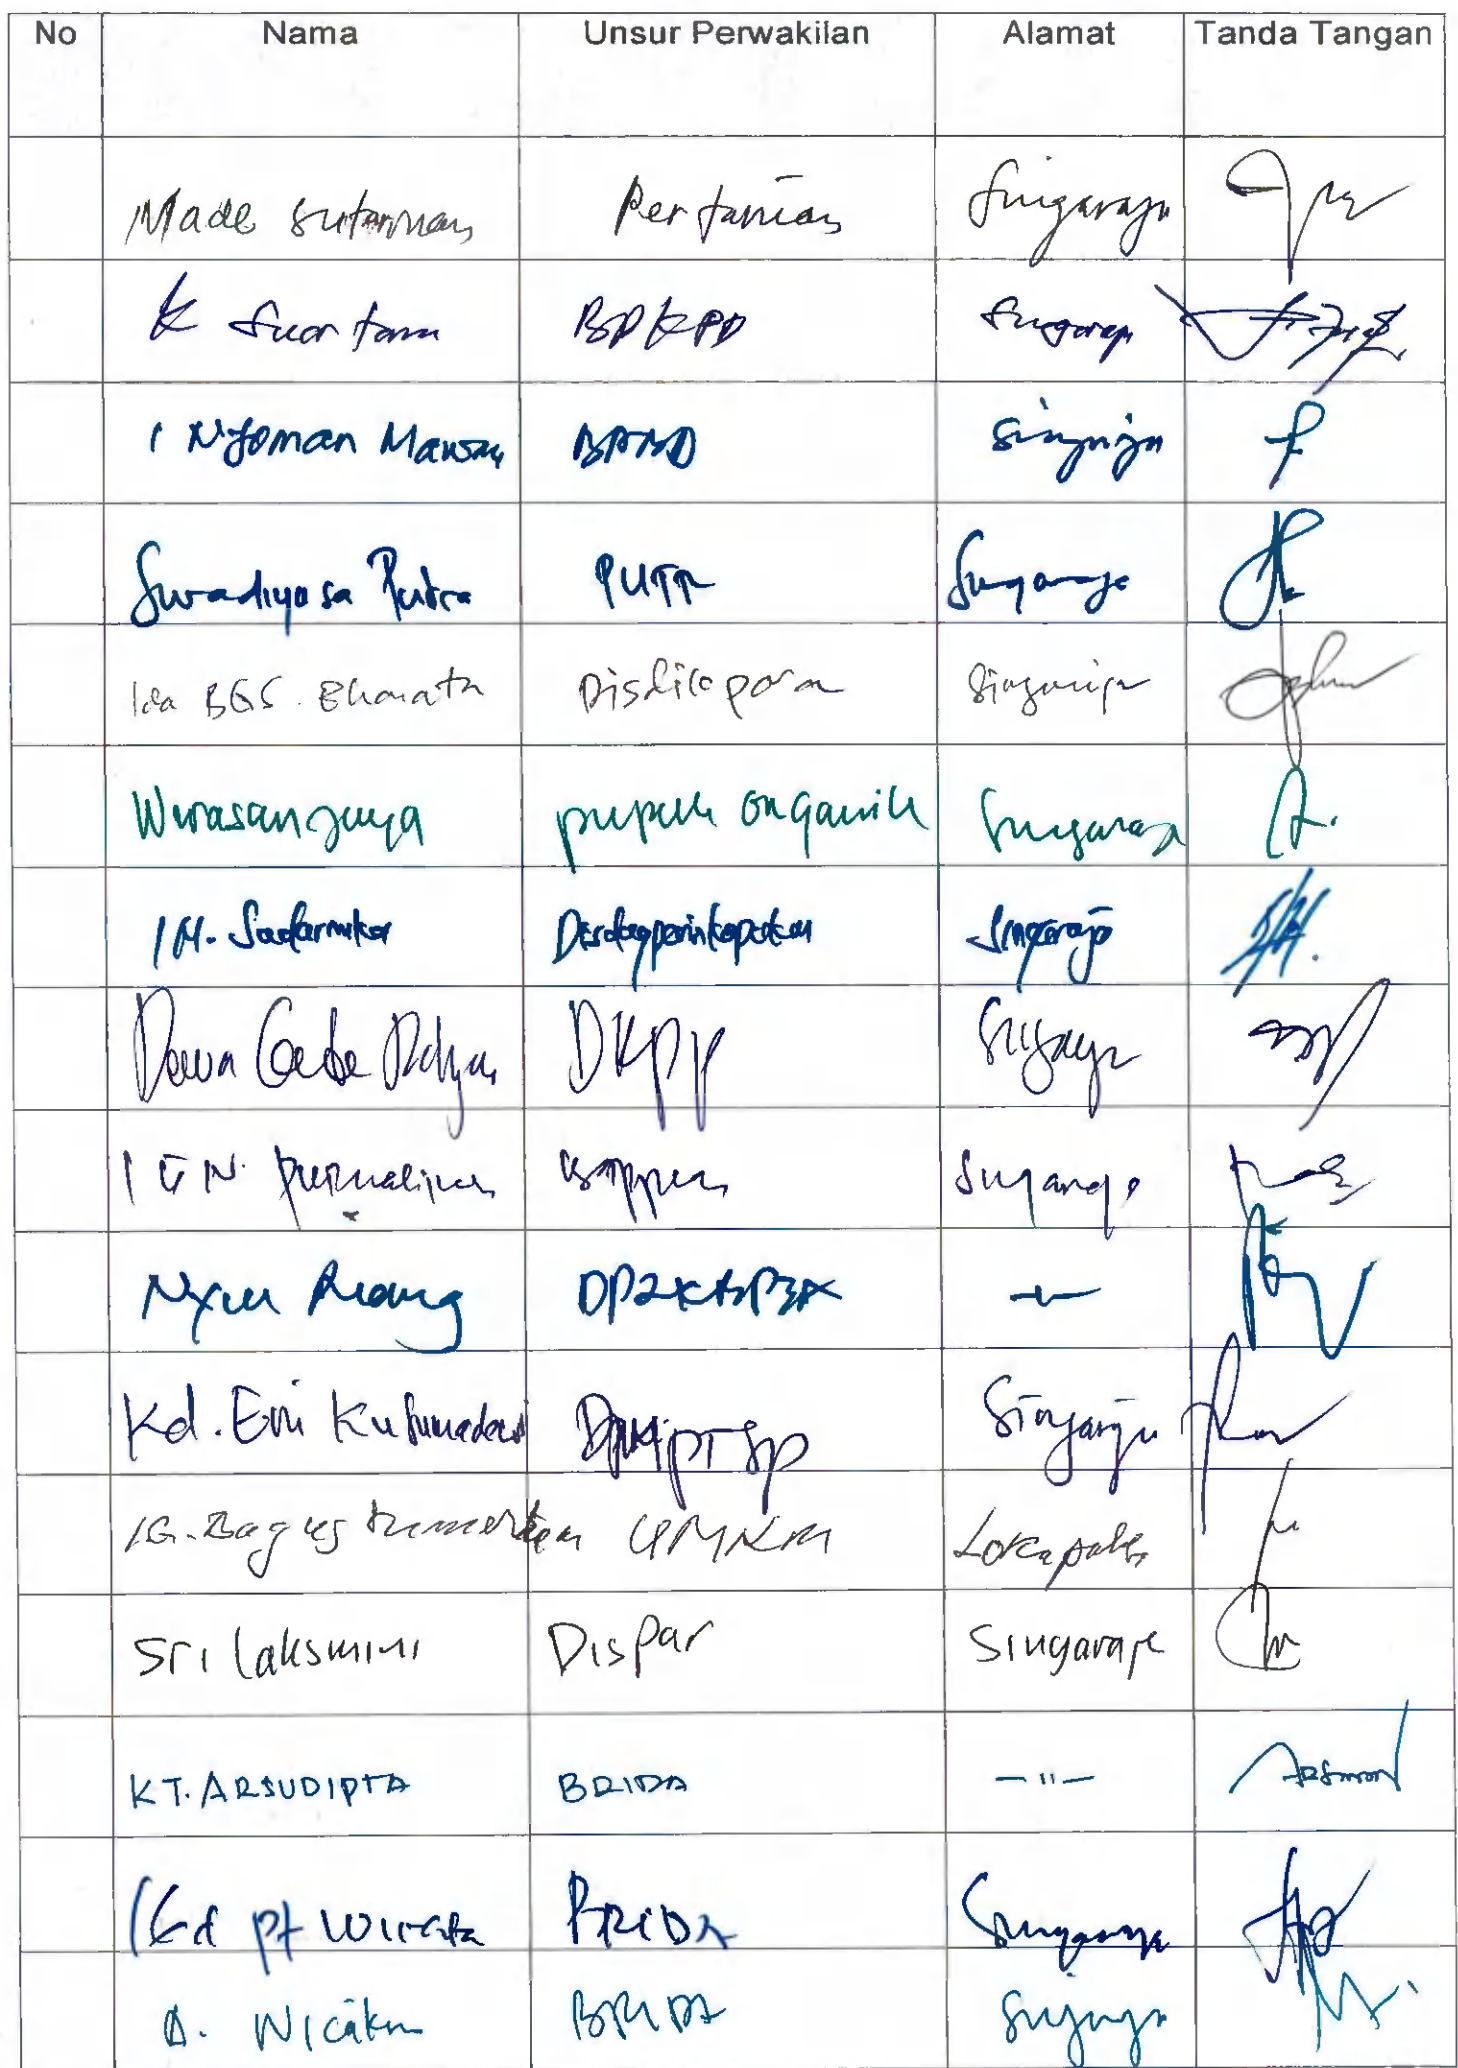 No Nama Unsur Perwakilan Alamat Tanda Tangan
Made Sutarman Pertanian Singaraja
K Suartana BPKPD Singaraja
I Nyoman BPBD Singaraja
Suradiyasa Putra PUTR Singaraja
Ida BGS. Bharata Disdikpora Singaraja
Wirasanjaya pupuk organik Singaraja
I M. Sadarmika Disdagperinkopukm Singaraja
Dewa Gede DKPP Singaraja
I G N. Singaraja
DP2KBP3A
Kd. Evi Kusumadewi DPMPTSP Singaraja
IG. Bagus UMKM Lokapaksa
Sri Laksmini Dispar Singaraja
KT. ARSUDIPTA BRIDA —"—
Gd pt BRIDA Singaraja
BRIDA Singaraja